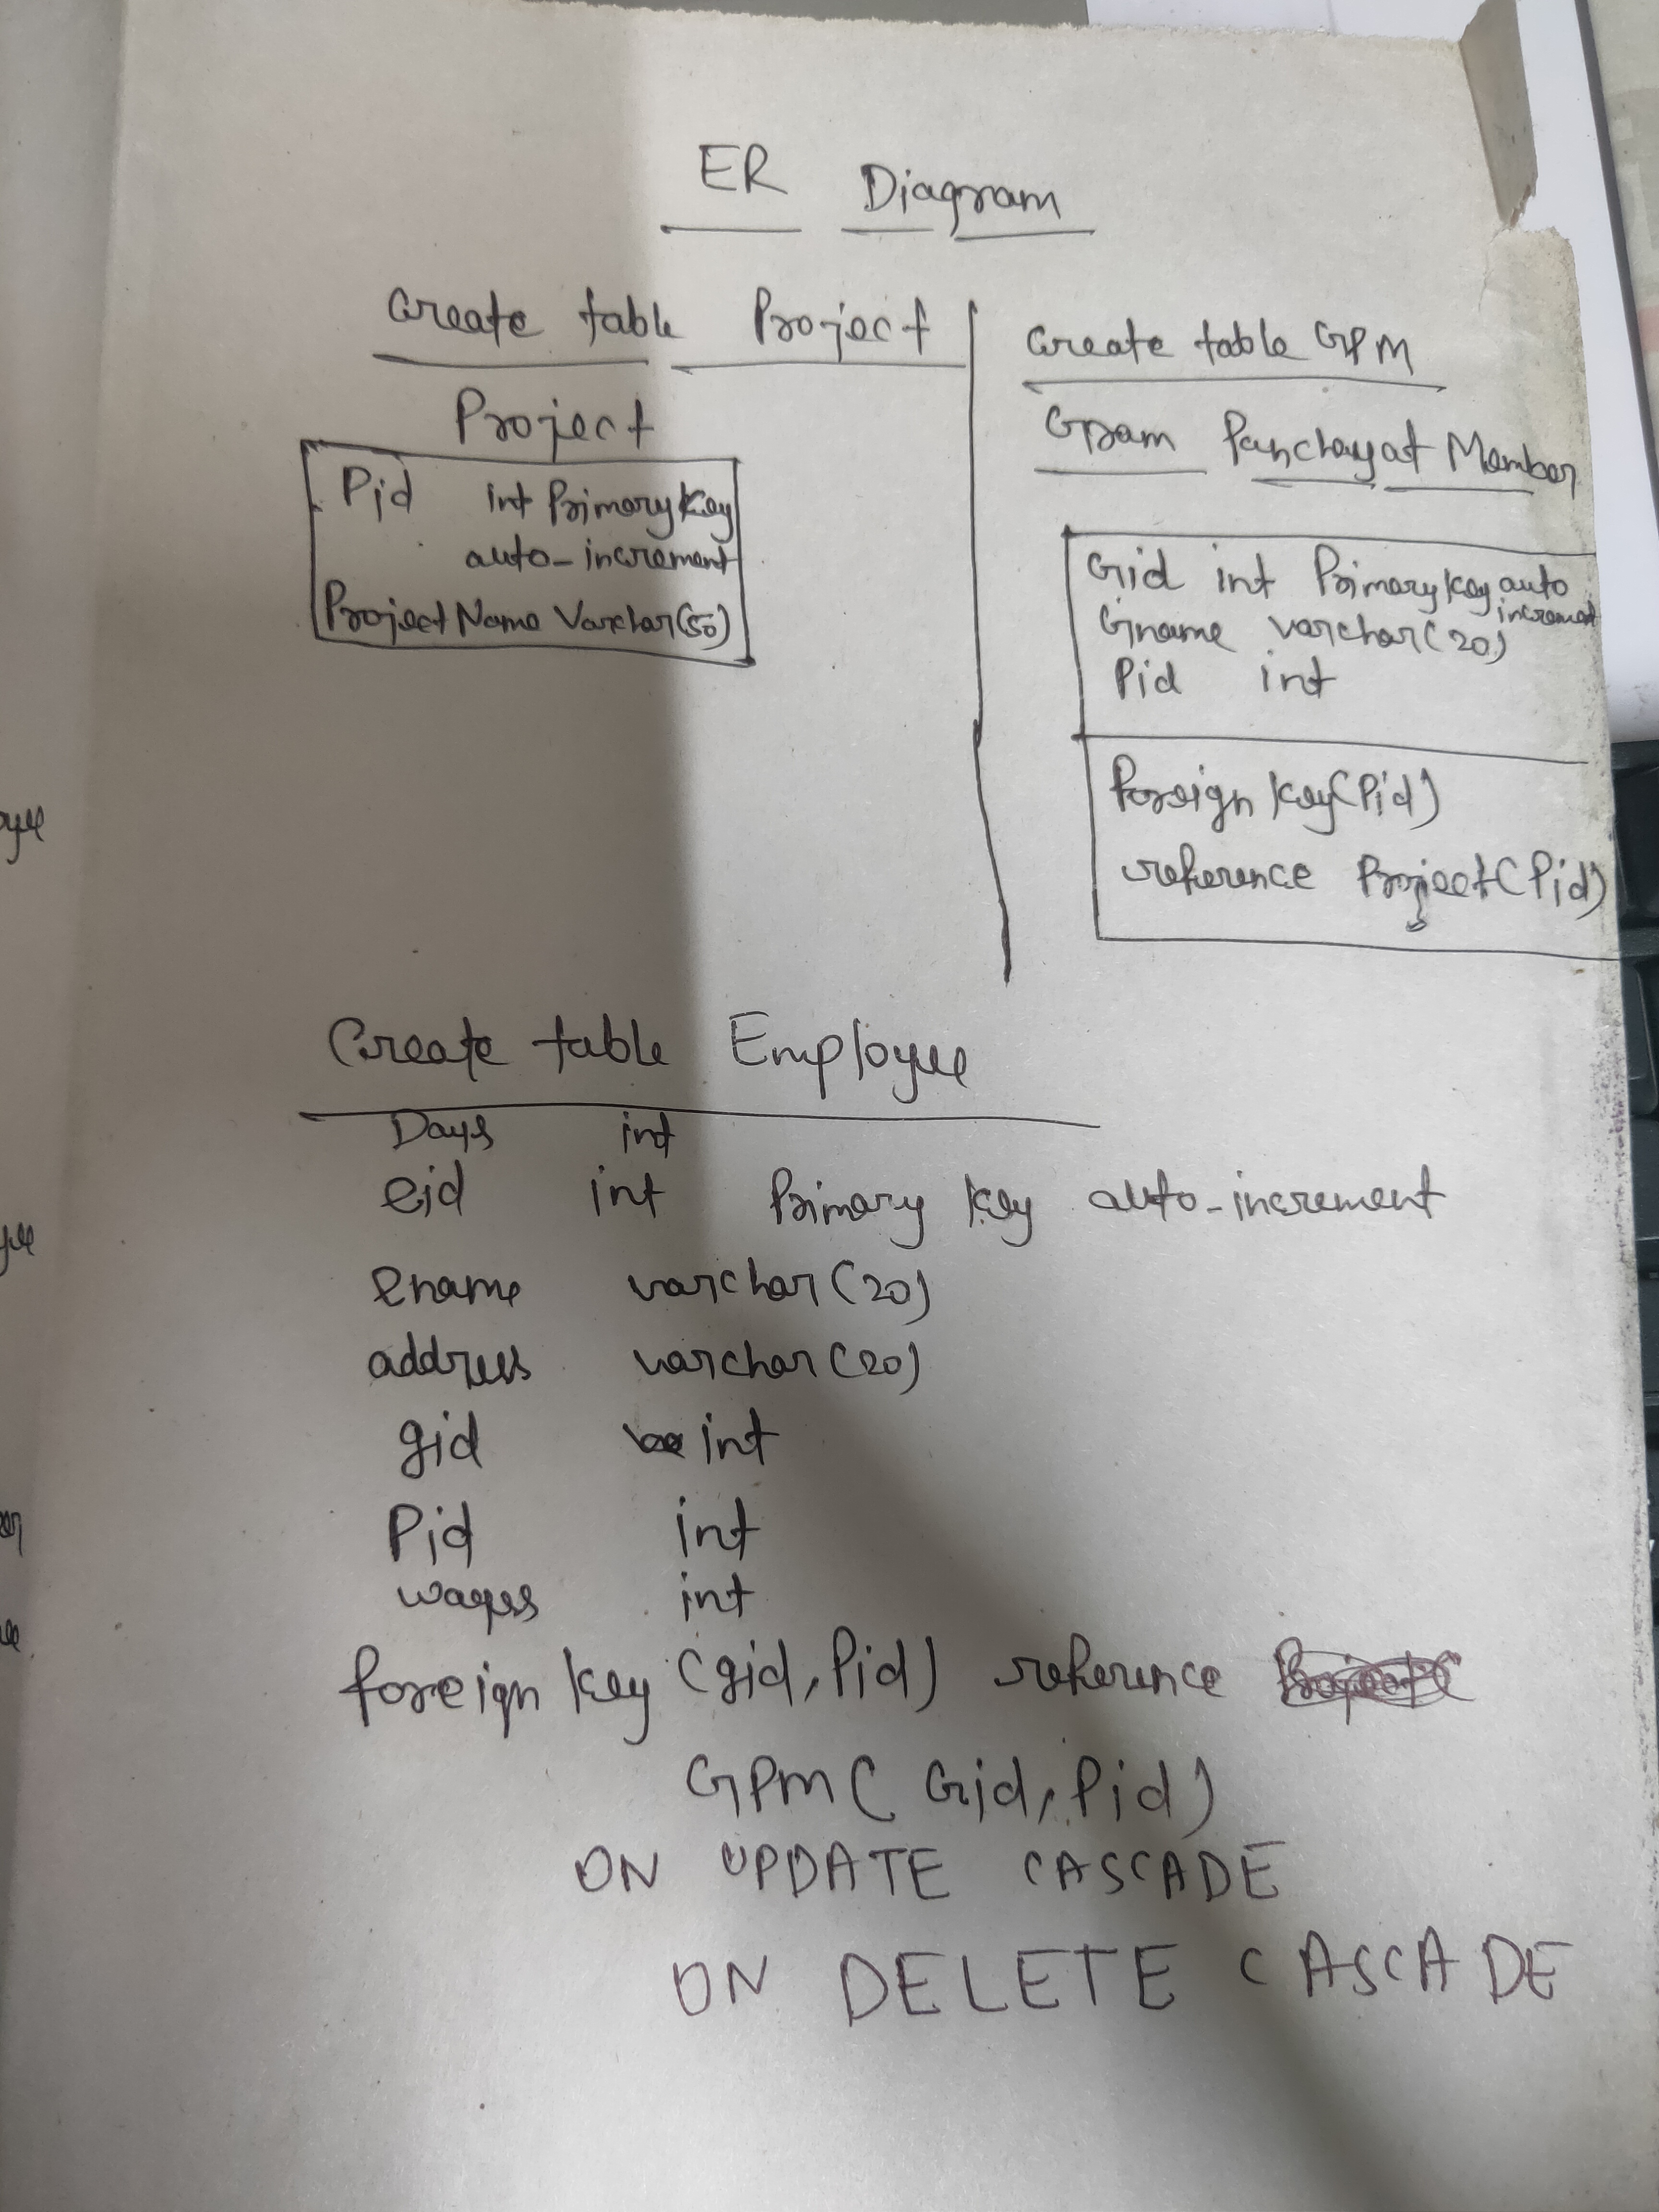 ER Diagram
Create table Project
Project
Pid int Primary Key
auto-increment
Project Name Varchar(50)
Create table GPM
Gram Panchayat Member
Gid int Primary Key auto
increment
Gname varchar(20)
Pid int
foreign key(Pid)
reference Project(Pid)
Create table Employee
Days int
eid int Primary Key auto-increment
ename varchar(20)
address varchar(20)
gid int
Pid int
wages int
foreign key (gid, Pid) reference
GPM( Gid, Pid)
ON UPDATE CASCADE
ON DELETE CASCADE